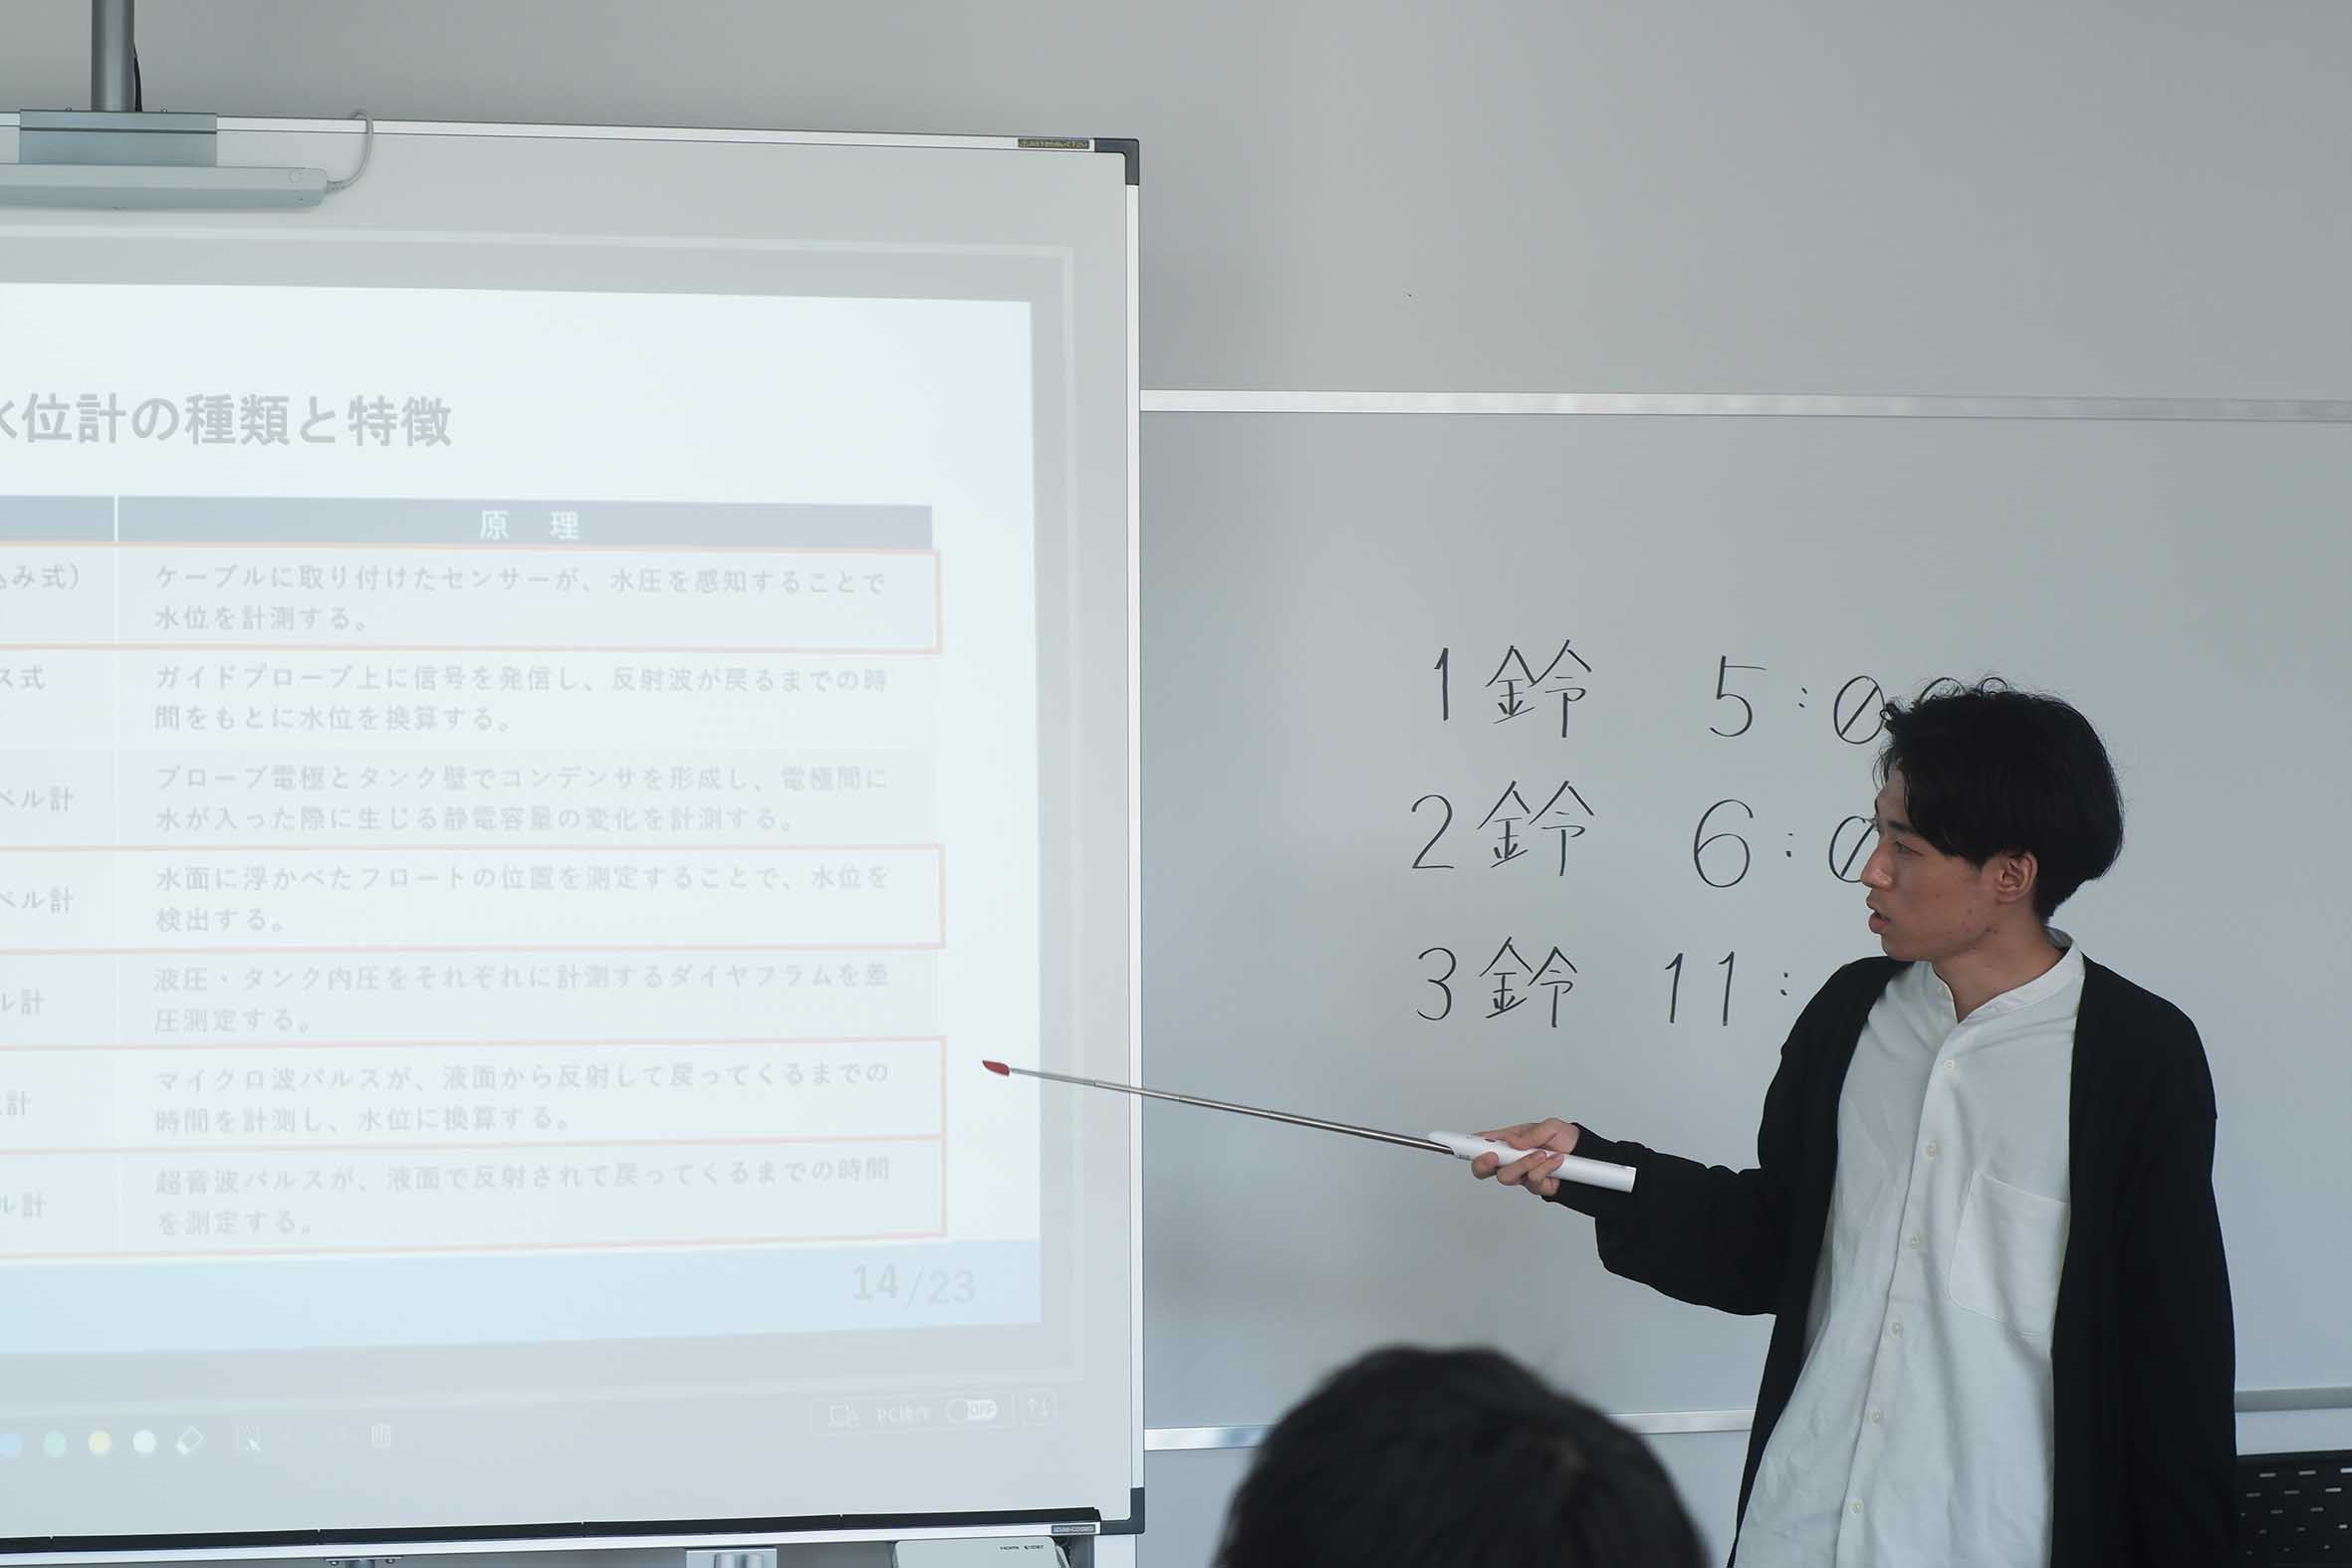 水位計の種類と特徴
原　理
込み式）
ケーブルに取り付けたセンサーが、水圧を感知することで
水位を計測する。
ス式
ガイドプローブ上に信号を発信し、反射波が戻るまでの時
間をもとに水位を換算する。
ベル計
プローブ電極とタンク壁でコンデンサを形成し、電極間に
水が入った際に生じる静電容量の変化を計測する。
ベル計
水面に浮かべたフロートの位置を測定することで、水位を
検出する。
ル計
液圧・タンク内圧をそれぞれに計測するダイヤフラムを差
圧測定する。
計
マイクロ波パルスが、液面から反射して戻ってくるまでの
時間を計測し、水位に換算する。
ル計
超音波パルスが、液面で反射されて戻ってくるまでの時間
を測定する。
14/23
PC操作 OFF
1鈴 5:00
2鈴 6:0
3鈴 11: